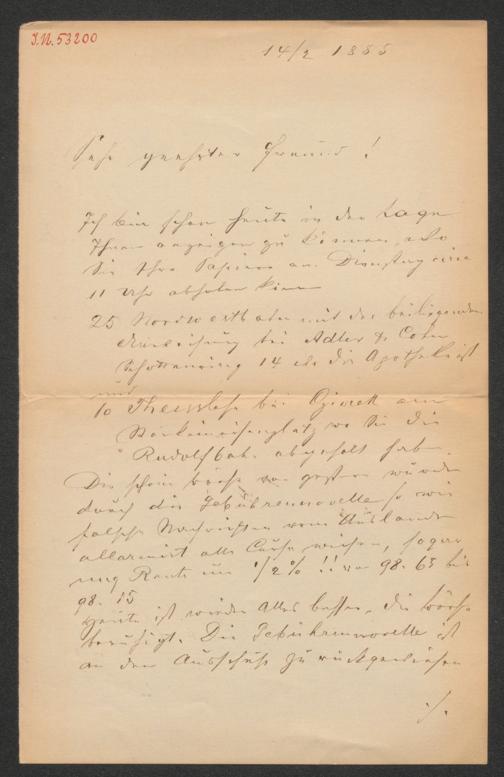 I.N. 53200
14/2 1885
Sehr geehrter Freund!
Ich bin schon heute in der Lage
Ihnen anzeigen zu können, wo
Sie Ihre Papiere am Dienstag circa
11 Uhr abholen können
25 Nordwestbahn mit der beiliegenden
Anweisung bei Adler &
Schottenring 14 wo die Apotheke ist
und
10 Theissloße bei am
wo Sie die
Rudolfbahn abgeholt haben.
Die schon Börse von gestern wurde
durch die Gebührennovelle so wie
falsche Nachrichten vom Auslande
allarmirt alle Curse wichen, sogar
ung Rente um 1/2 % !! von 98.65 bis
98.15
Heute ist wieder Alles besser, die Börse
beruhigt. Die Gebührennovelle ist
an den Ausschuß zurückgewiesen
./.